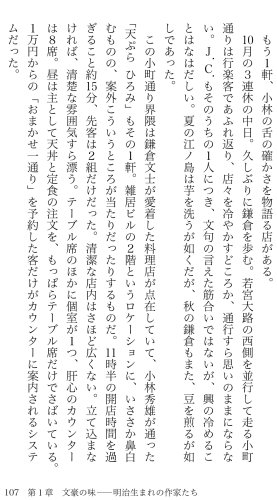 もう1軒、小林の舌の確かさを物語る店がある。
10月の3連休の中日。久しぶりに鎌倉を歩む。若宮大路の西側を並行して走る小町
通りは行楽客であふれ返り、店々を冷やかすどころか、通行すら思いのままにならな
い。J.C.もそのうちの1人につき、文句の言えた筋合いではないが、興の冷めるこ
とはなはだしい。夏の江ノ島は芋を洗うが如くだが、秋の鎌倉もまた、豆を煎るが如
しであった。
この小町通り界隈は鎌倉文士が愛着した料理店が点在していて、小林秀雄が通った
「天ぷら ひろみ」もその1軒。雑居ビルの2階というロケーションに、いささか鼻白
むものの、案外こういうところが当たりだったりするものだ。11時半の開店時間を過
ぎること約15分、先客は2組だけだった。清潔な店内はさほど広くない。立て込まな
ければ、清楚な雰囲気すら漂う。テーブル席のほかに個室が1つ、肝心のカウンター
は8席。昼は主として天丼と定食の注文を、もっぱらテーブル席だけでさばいている。
1万円からの「おまかせ一通り」を予約した客だけがカウンターに案内されるシステ
ムだった。
107 第1章 文豪の味──明治生まれの作家たち